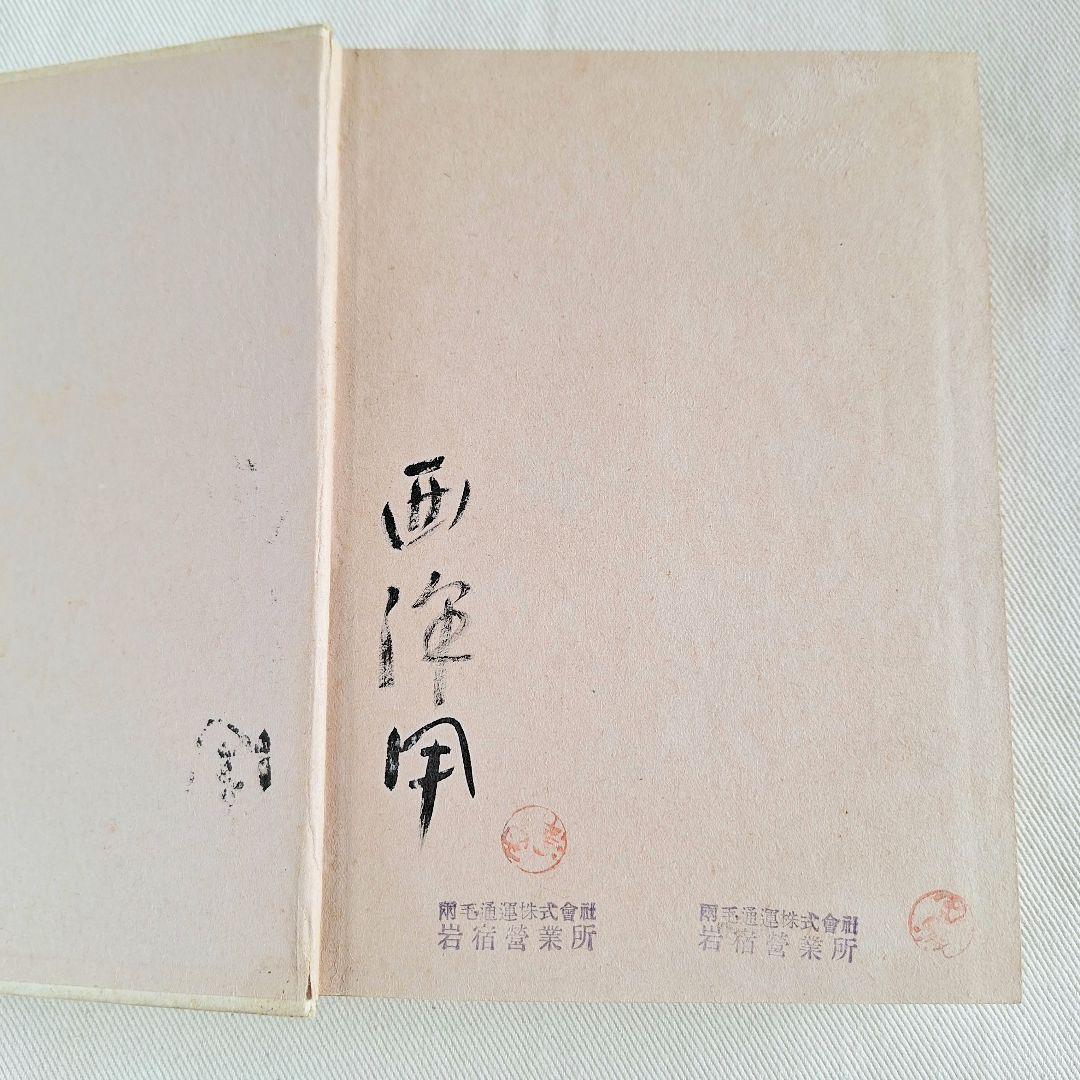 西澤用
兩毛通運株式會社
岩宿營業所
兩毛通運株式會社
岩宿營業所